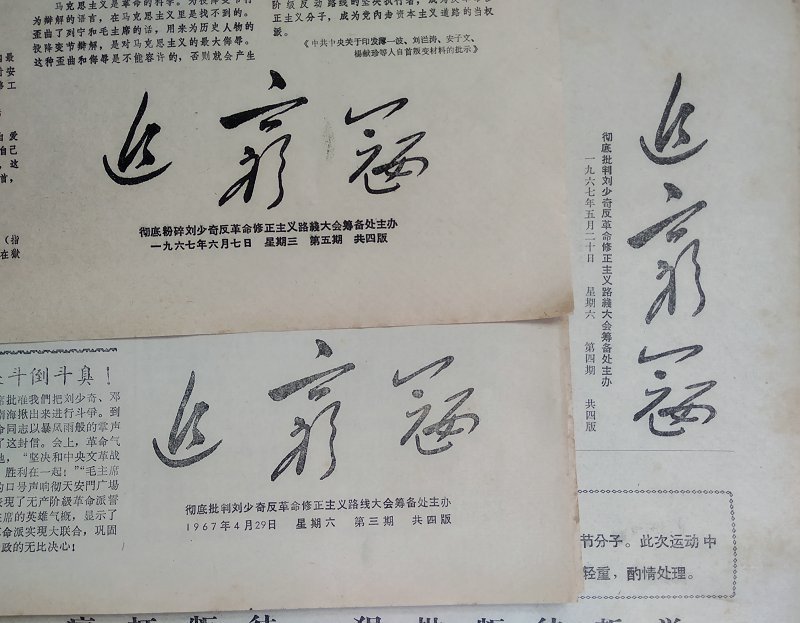 马克思主义是革命的科学。
为辩解的语言，在马克思主义里是找不到的。
歪曲了列宁和毛主席的话，用来为历史人物的
投降变节辩解，是对马克思主义的最大侮辱。
这种歪曲和侮辱是不能容许的，否则就会产生
阶级反动路线的坚决执行者，成为
正主义分子，成为党内走资本主义道路的当权
派。
《中共中央关于印发薄一波、刘澜涛、安子文、
杨献珍等人自首叛变材料的批示》
追穷寇
彻底粉碎刘少奇反革命修正主义路綫大会筹备处主办
一九六七年六月七日 星期三 第五期 共四版
追穷寇
彻底批判刘少奇反革命修正主义路綫大会筹备处主办
一九六七年五月二十日 星期六 第四期 共四版
斗倒斗臭！
席批准我們把刘少奇、邓
南海揪出来进行斗爭。到
命同志以暴风雨般的掌声
了这封信。会上，革命气
地，“坚决和中央文革战
胜利在一起！”“毛主席
的口号声响彻天安門广場
表现了无产阶級革命派誓
主席的英雄气概，显示了
革命派实現大联合，巩固
政的无比决心！
追穷寇
彻底批判刘少奇反革命修正主义路线大会筹备处主办
1967年4月29日 星期六 第三期 共四版
节分子。此次运动中
轻重，酌情处理。